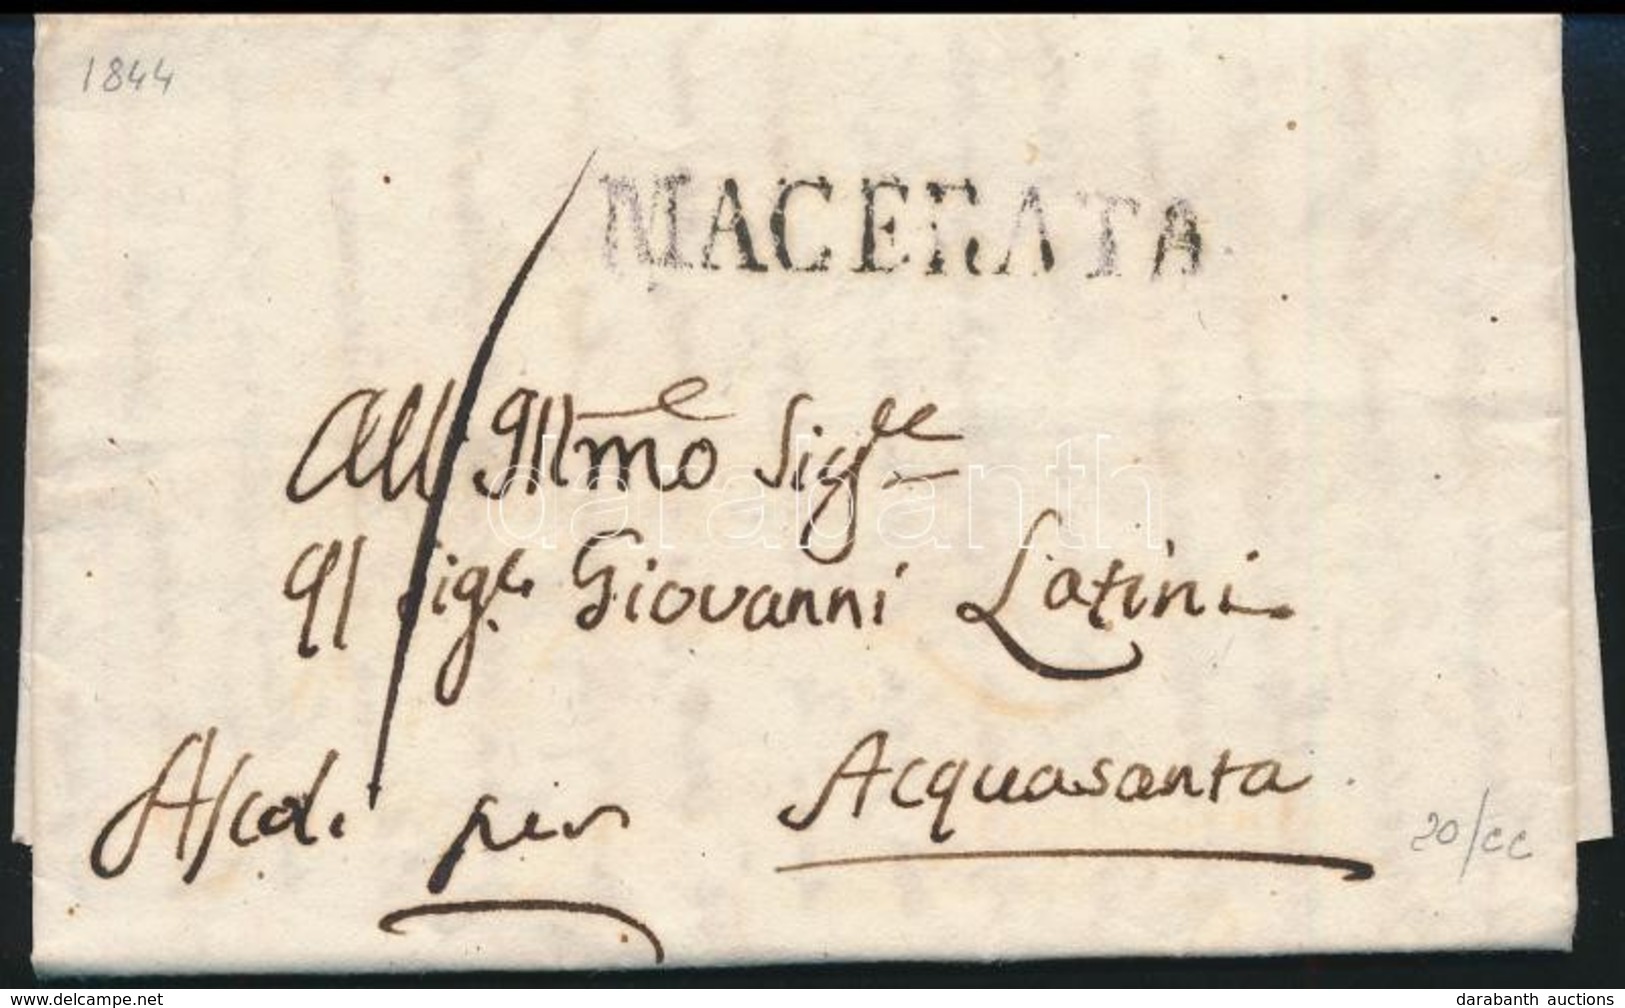 1844
MACERATA
All' Illmo Sigre
Il Sigr Giovanni Latini
Ascoli per Acquasanta
20/cc
darabanth
www.delcampe.net
darabanth auctions